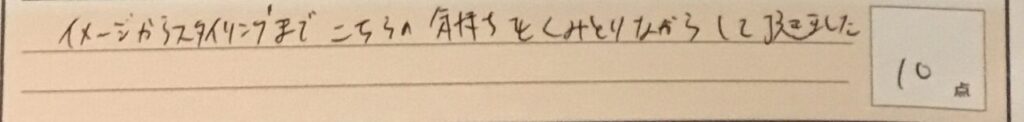 イメージからスタイリングまで こちらの 気持ちをくみとりながら して頂きました
10点